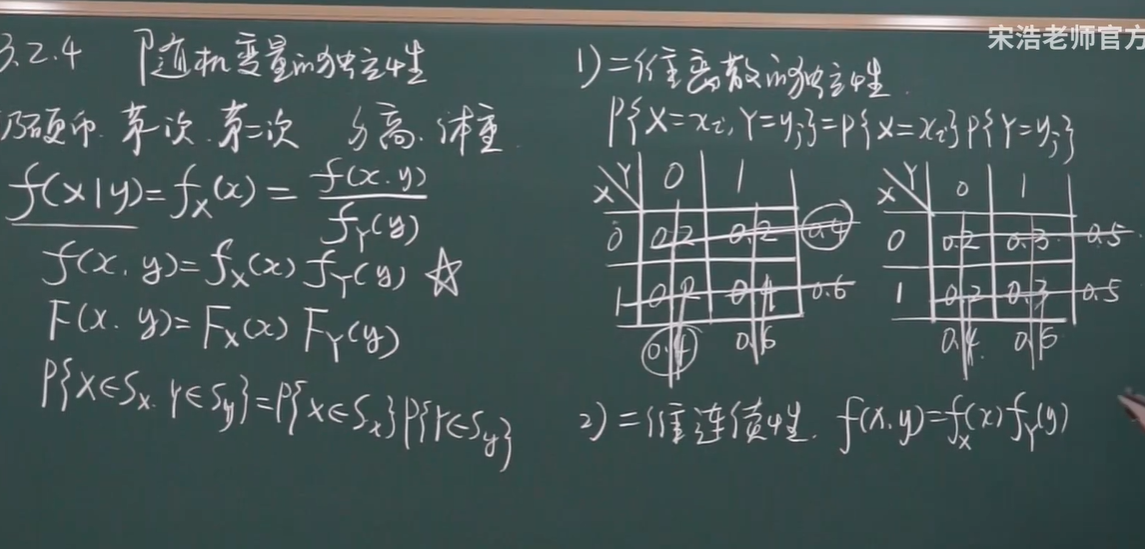 3.2.4 随机变量的独立性
扔硬币. 第一次. 第二次 身高. 体重
f(x|y)=f_X(x)=f(x.y)/f_Y(y)
f(x.y)=f_X(x) f_Y(y) ☆
F(x.y)=F_X(x) F_Y(y)
P{X∈S_x. Y∈S_y}=P{X∈S_x}P{Y∈S_y}
宋浩老师官方
1) 二维离散的独立性.
P{X=x_i, Y=y_j}=P{X=x_i}P{Y=y_j}
X Y 0 1
0 0.2 0.2 0.4
1 0.2 0.4 0.6
0.4 0.6
X Y 0 1
0 0.2 0.3 0.5
1 0.2 0.3 0.5
0.4 0.6
2) 二维连续性. f(x.y)=f_X(x) f_Y(y)